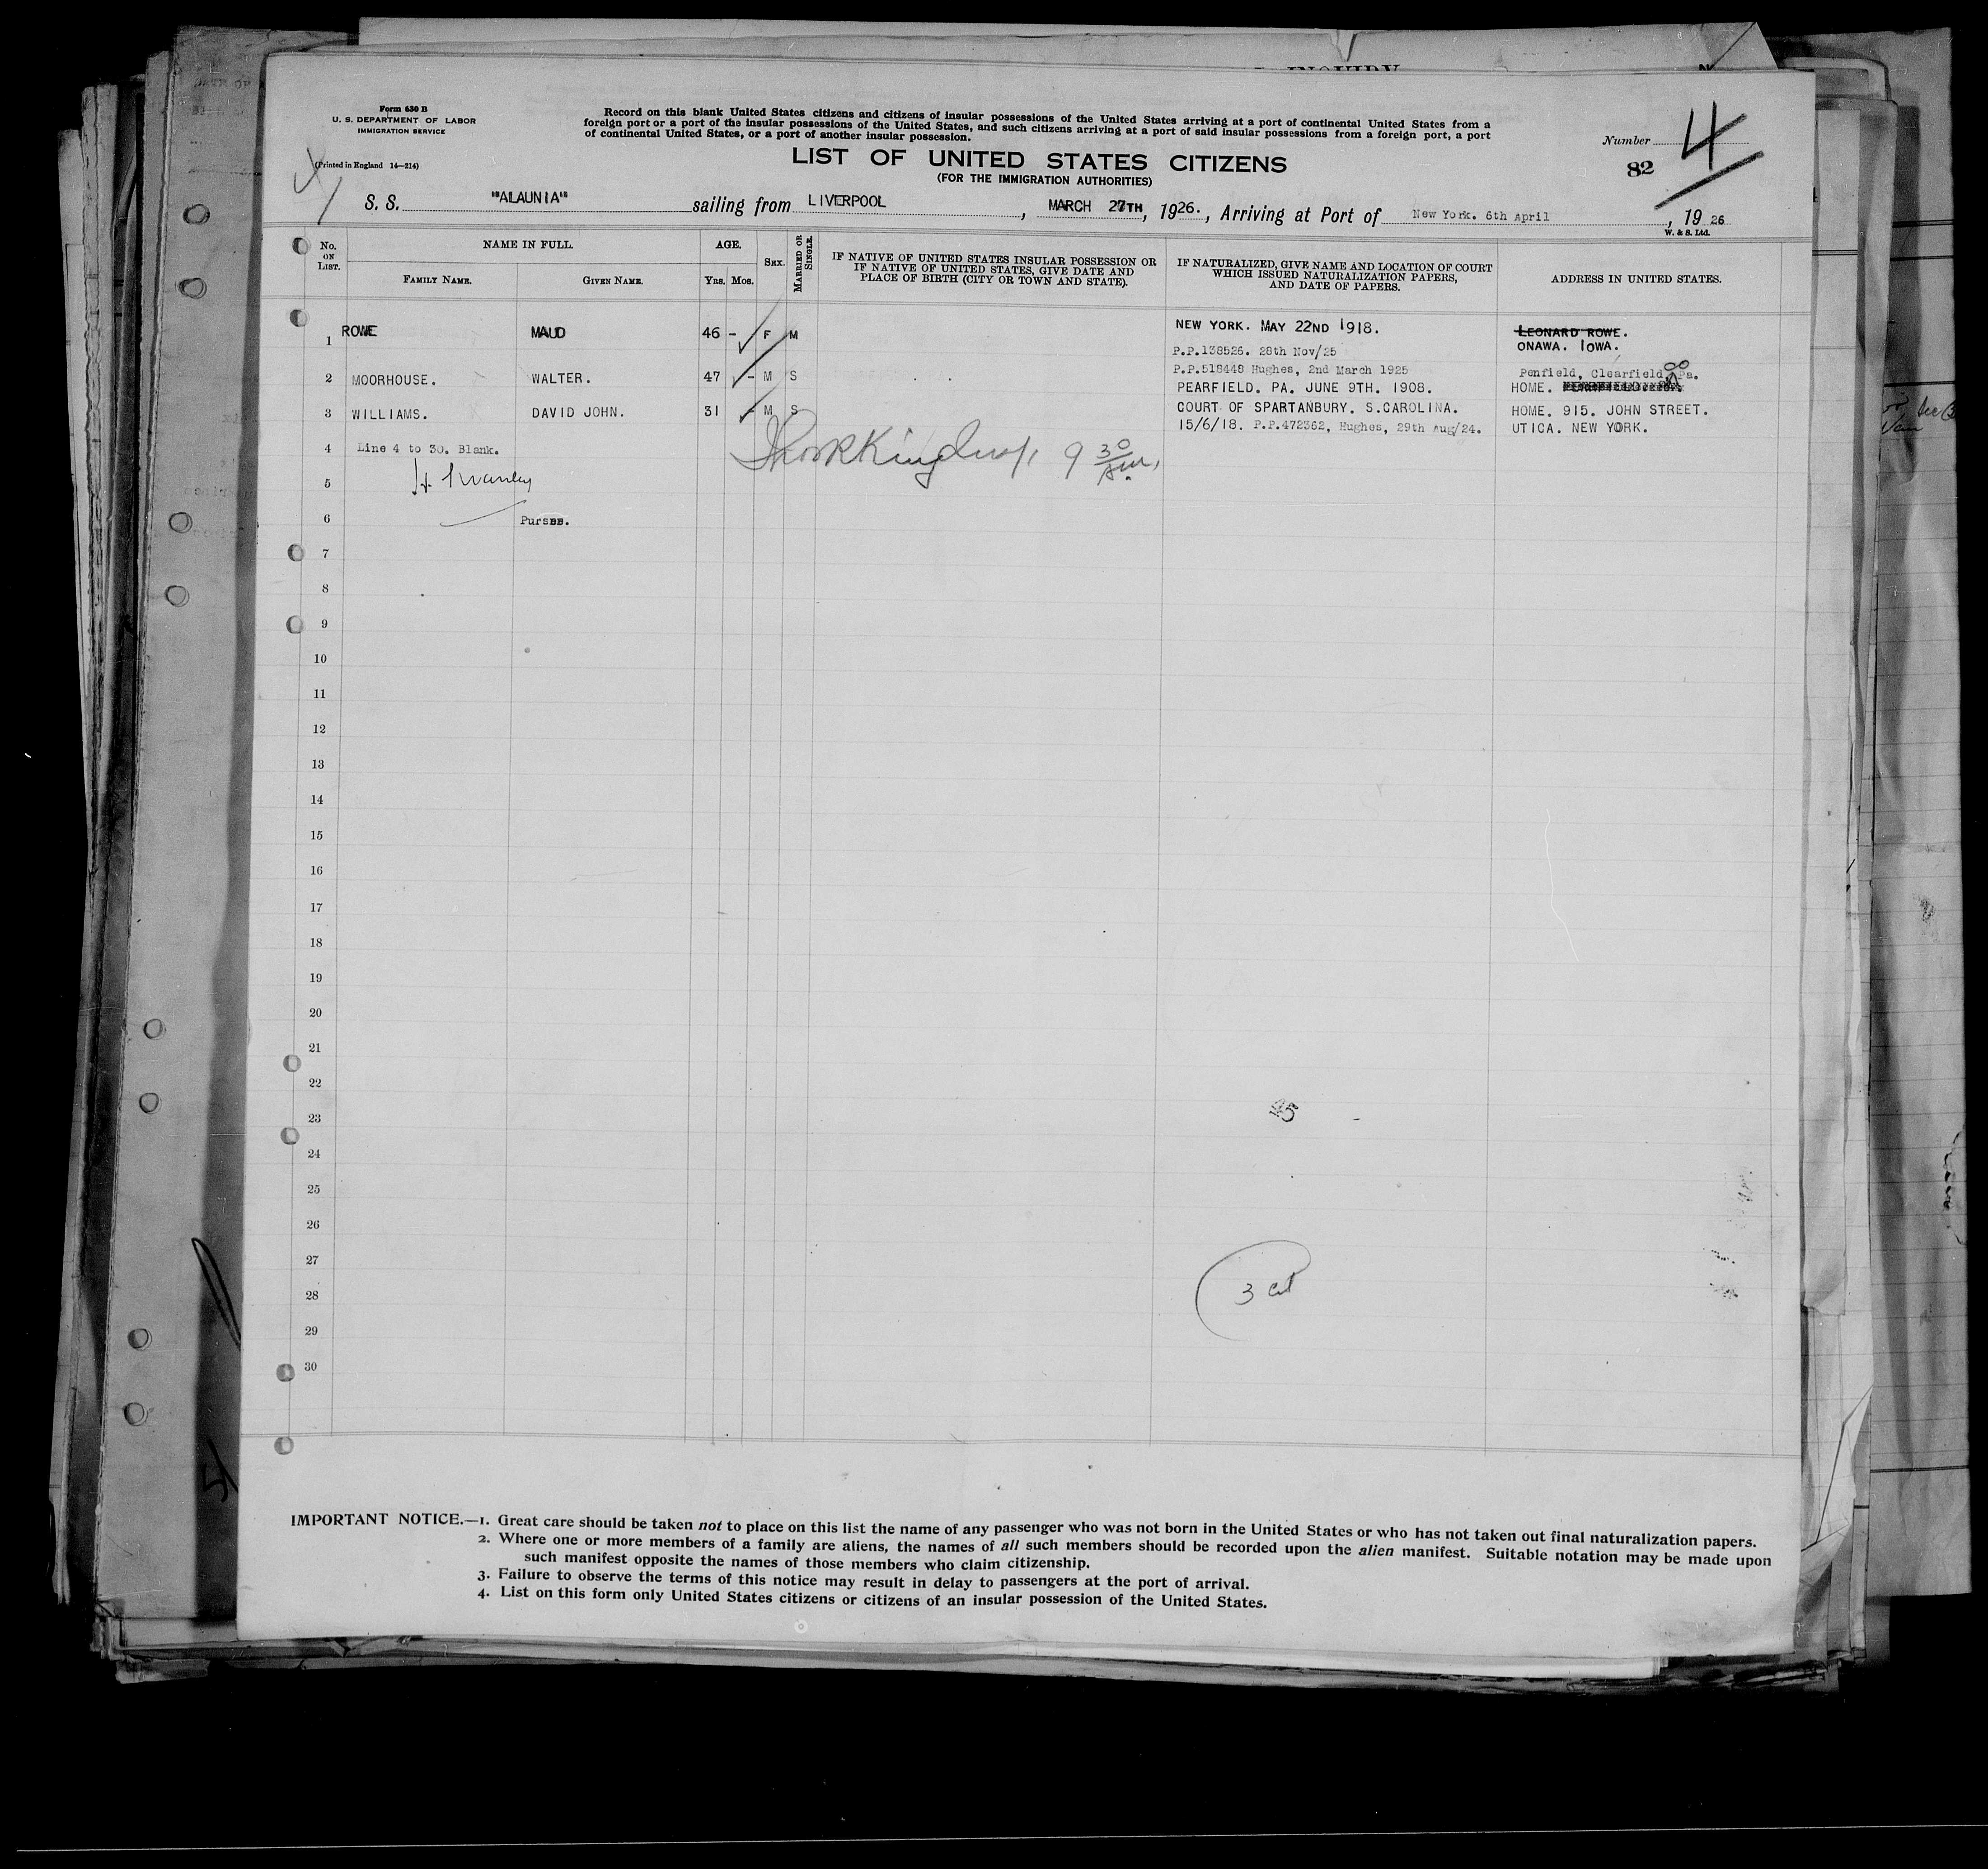 Form 630 B
U. S. DEPARTMENT OF LABOR
IMMIGRATION SERVICE
(Printed in England 14—214)
Record on this blank United States citizens and citizens of insular possessions of the United States arriving at a port of continental United States from a
foreign port or a port of the insular possessions of the United States, and such citizens arriving at a port of said insular possessions from a foreign port, a port
of continental United States, or a port of another insular possession.
LIST OF UNITED STATES CITIZENS
(FOR THE IMMIGRATION AUTHORITIES)
Number 4
82
S. S. "ALAUNIA" sailing from LIVERPOOL, MARCH 27TH, 1926., Arriving at Port of New York. 6th April, 1926
W. & S. Ltd.
No. ON LIST. NAME IN FULL. AGE. SEX. MARRIED OR SINGLE.
FAMILY NAME. GIVEN NAME. YRS. MOS.
IF NATIVE OF UNITED STATES INSULAR POSSESSION OR
IF NATIVE OF UNITED STATES, GIVE DATE AND
PLACE OF BIRTH (CITY OR TOWN AND STATE).
IF NATURALIZED, GIVE NAME AND LOCATION OF COURT
WHICH ISSUED NATURALIZATION PAPERS,
AND DATE OF PAPERS.
ADDRESS IN UNITED STATES.
1 ROWE MAUD 46 - F M NEW YORK. MAY 22ND 1918. LEONARD ROWE.
P.P.138526. 28th Nov/25 ONAWA. IOWA.
P.P.518448 Hughes, 2nd March 1925 Penfield, Clearfield, Pa.
2 MOORHOUSE. WALTER. 47 - M S PEARFIELD. PA. JUNE 9TH. 1908. HOME.
3 WILLIAMS. DAVID JOHN. 31 - M S COURT OF SPARTANBURY. S.CAROLINA. HOME. 915. JOHN STREET.
15/6/18. P.P.472362, Hughes, 29th Aug/24. UTICA. NEW YORK.
4 Line 4 to 30. Blank.
9 30 Am.
5
6 Purser.
7
8
9
10
11
12
13
14
15
16
17
18
19
20
21
22
23
24
25
26
27
28
3
29
30
IMPORTANT NOTICE.—1. Great care should be taken not to place on this list the name of any passenger who was not born in the United States or who has not taken out final naturalization papers.
2. Where one or more members of a family are aliens, the names of all such members should be recorded upon the alien manifest. Suitable notation may be made upon
such manifest opposite the names of those members who claim citizenship.
3. Failure to observe the terms of this notice may result in delay to passengers at the port of arrival.
4. List on this form only United States citizens or citizens of an insular possession of the United States.